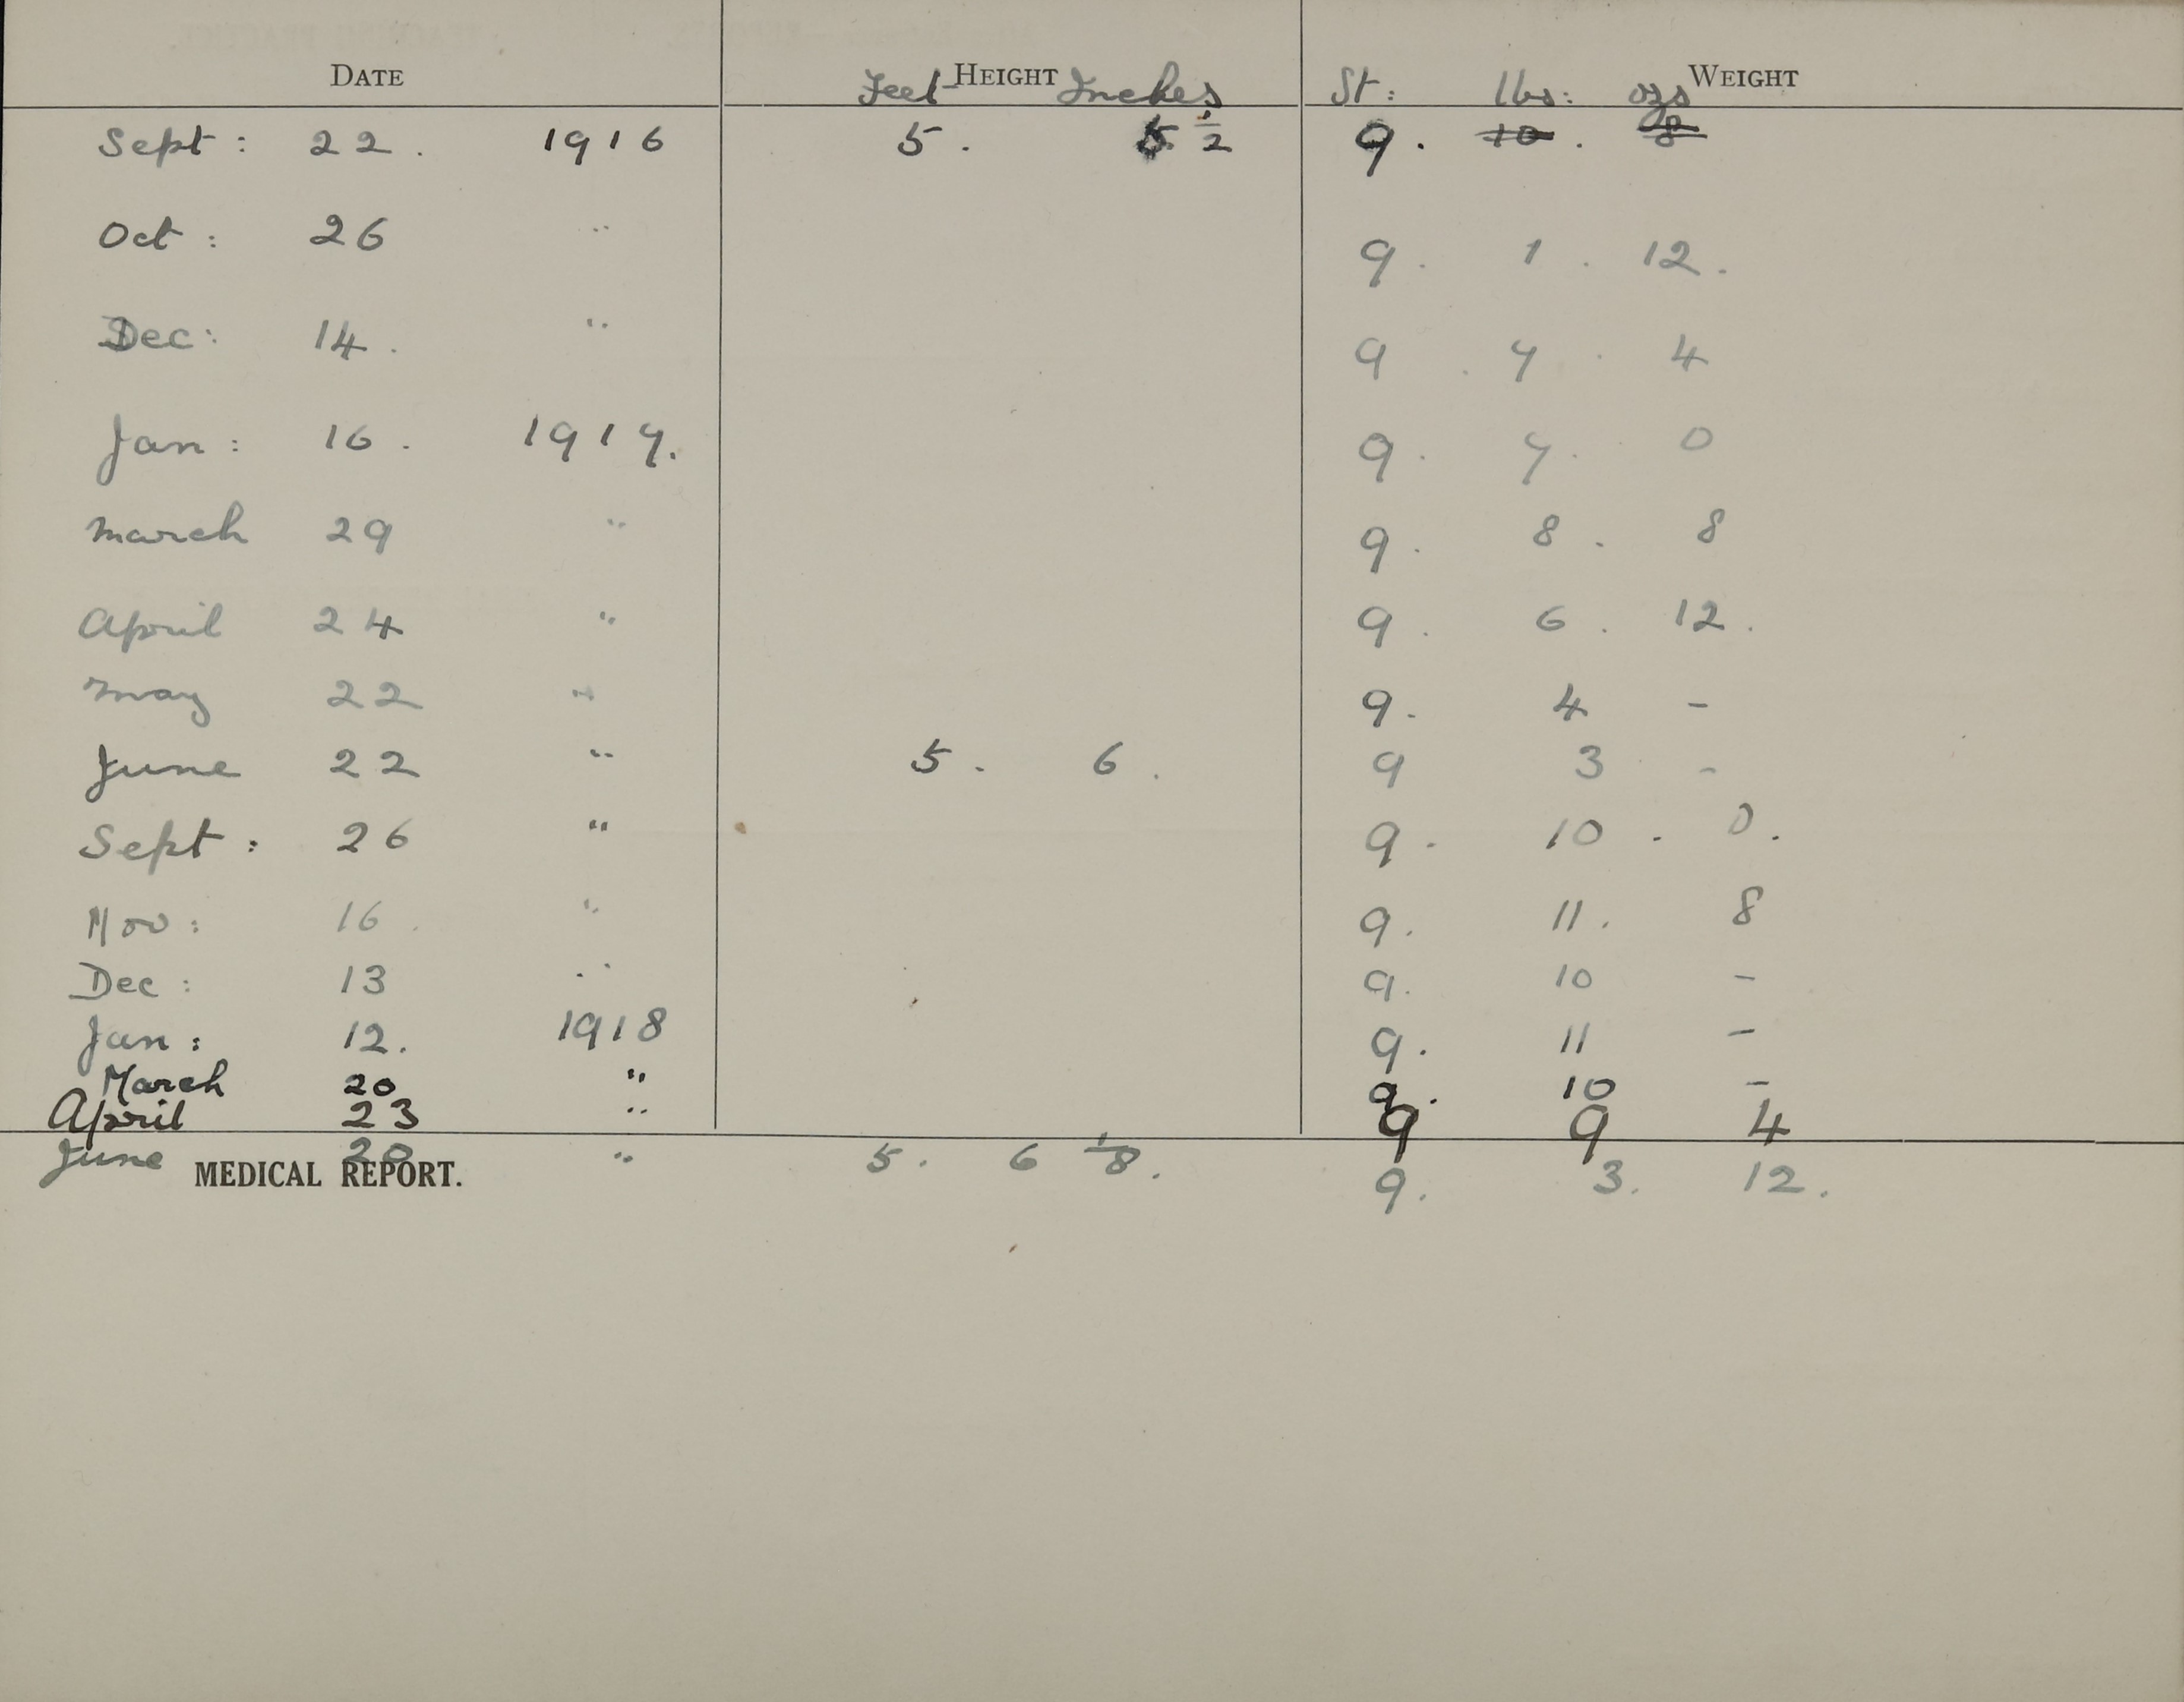 DATE Feet HEIGHT Inches St: lbs: ozs WEIGHT
Sept: 22. 1916 5. 5 1/2 9. 10. 8
Oct: 26 " 9. 1. 12.
Dec: 14. " 9. 7. 4
Jan: 16. 1917. 9. 7. 0
March 29 " 9. 8. 8
April 24 " 9. 6. 12.
May 22 " 9. 4 -
June 22 " 5. 6. 9 3 -
Sept: 26 " 9. 10. 0.
Nov: 16. " 9. 11. 8
Dec: 13 " 9. 10 -
Jan: 12. 1918 9. 11 -
March 20 " 9. 10 -
April 23 " 9 9 4
June 20 " 5. 6 1/8. 9. 3. 12.
MEDICAL REPORT.